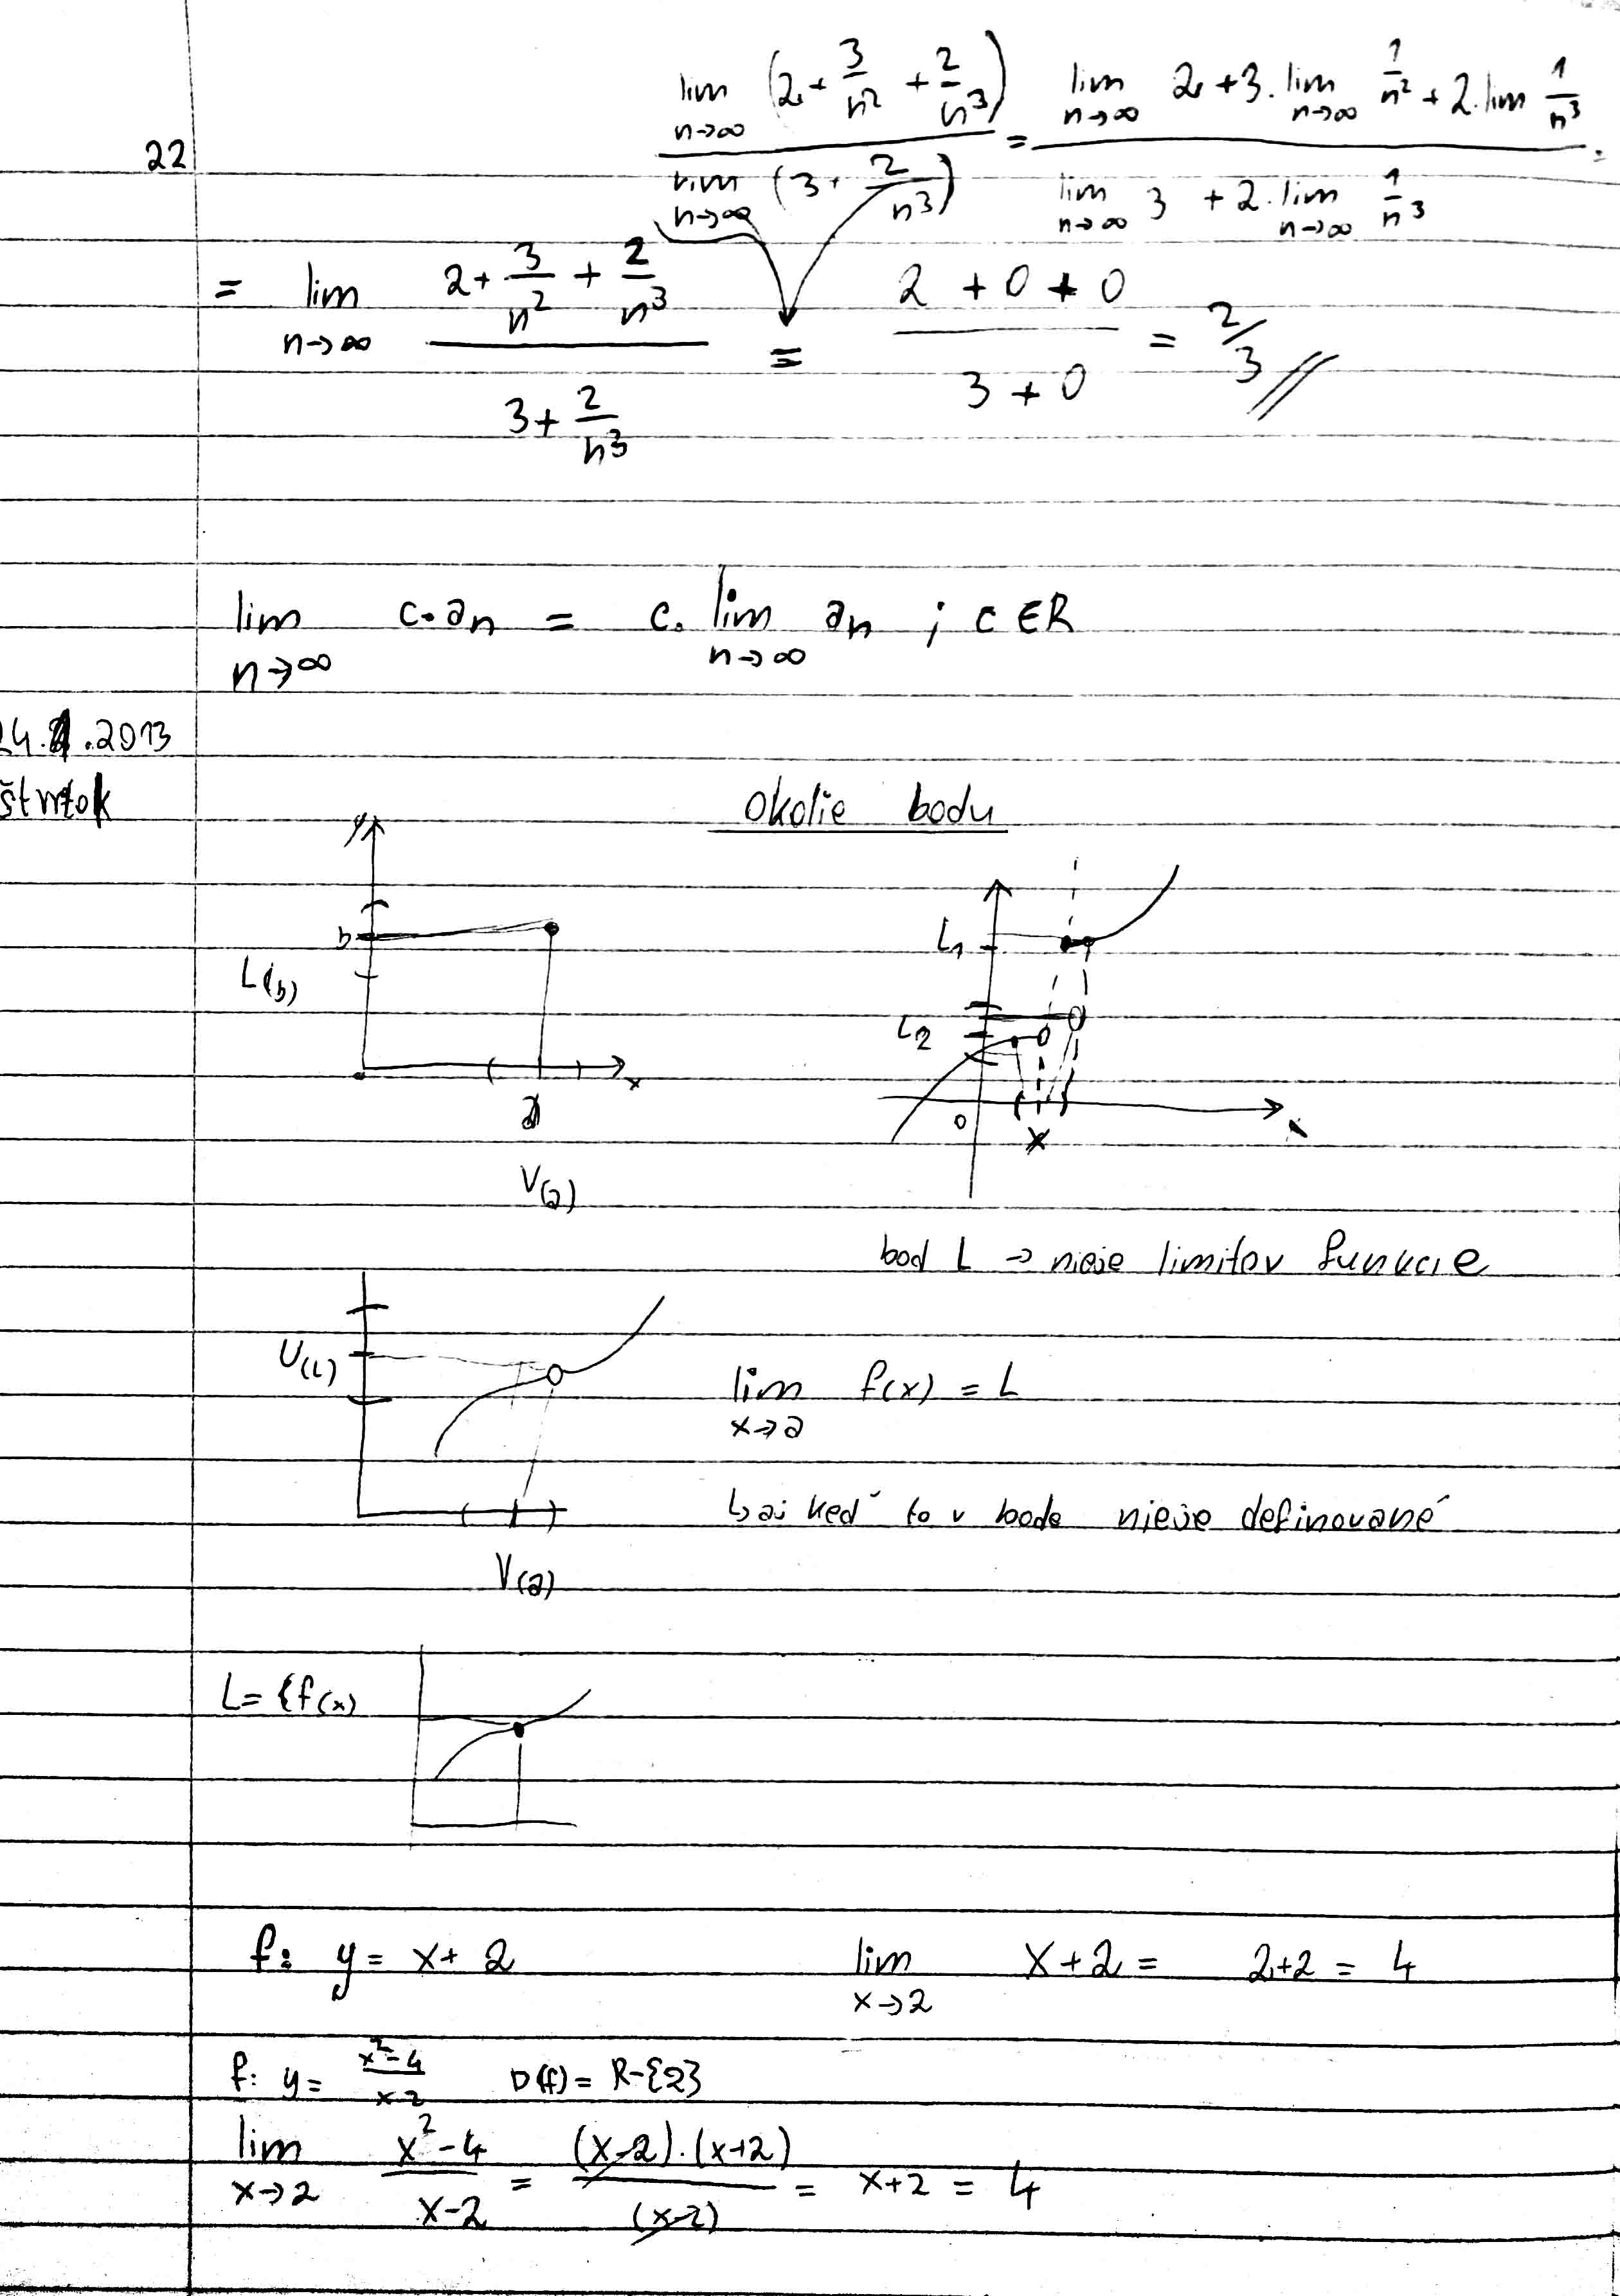 22
lim n→∞ (2 + 3/n² + 2/n³) / lim n→∞ (3 + 2/n³) = (lim n→∞ 2 + 3. lim n→∞ 1/n² + 2. lim 1/n³) / (lim n→∞ 3 + 2. lim n→∞ 1/n³) =
= lim n→∞ (2 + 3/n² + 2/n³) / (3 + 2/n³) = (2 + 0 + 0) / (3 + 0) = 2/3
lim n→∞ c.an = c. lim n→∞ an ; c ∈ R
2013
štvrtok
Okolie bodu
y
b
L(b)
x
a
V(a)
L1
L2
0
x
bod L → nieje limitov funkcie
U(L)
lim x→a f(x) = L
↳ aj keď to v bode nieje definované
V(a)
L= {f(x)
f: y = x + 2
lim x→2 x+2 = 2+2 = 4
f: y = (x²-4)/(x-2) D(f) = R-{2}
lim x→2 (x²-4)/(x-2) = (x-2).(x+2)/(x-2) = x+2 = 4